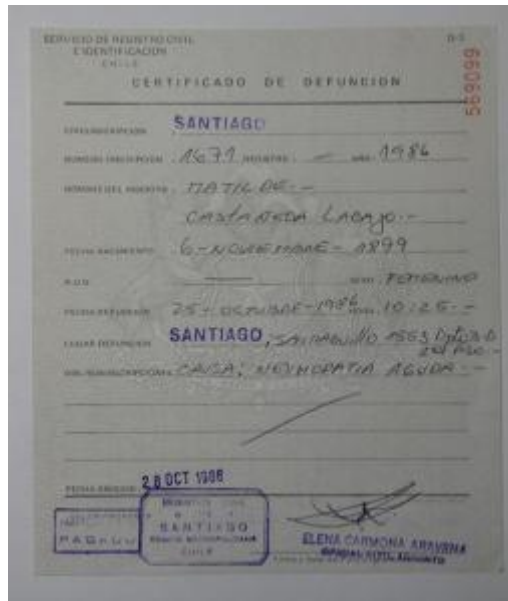 SERVICIO DE REGISTRO CIVIL
E IDENTIFICACION
CHILE
D-3
CERTIFICADO DE DEFUNCION
CIRCUNSCRIPCION SANTIAGO
NUMERO INSCRIPCION 1671 REGISTRO — AÑO 1986
NOMBRE DEL MUERTO MATILDE.-
CASTAÑEDA LABAJO.-
FECHA NACIMIENTO 6-NOVIEMBRE-1899
R.U.N. — SEXO FEMENINO
FECHA DEFUNCION 25-OCTUBRE-1986 HORA 10:25.-
LUGAR DEFUNCION SANTIAGO, 1563
CAUSA; AGUDA.-
FECHA EMISION 28 OCT 1986
SANTIAGO
REGION METROPOLITANA
CHILE
PAGADO
ELENA CARMONA ARAVENA
OFICIAL ADJUNTO